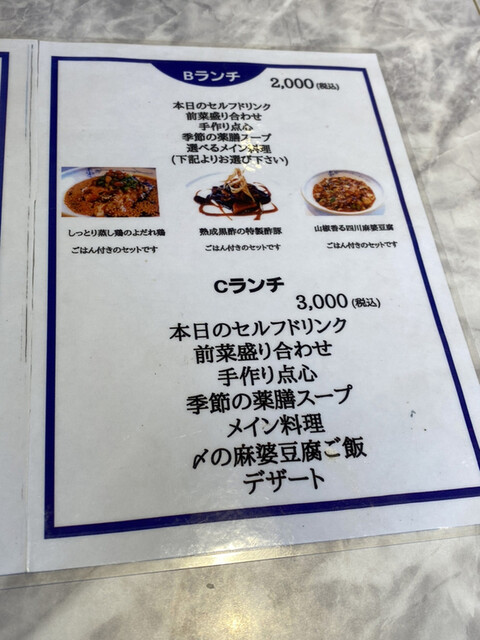 Bランチ
2,000(税込)
本日のセルフドリンク
前菜盛り合わせ
手作り点心
季節の薬膳スープ
選べるメイン料理
(下記よりお選び下さい)
しっとり蒸し鶏のよだれ鶏
熟成黒酢の特製酢豚
山椒香る四川麻婆豆腐
ごはん付きのセットです
ごはん付きのセットです
ごはん付きのセットです
Cランチ
3,000(税込)
本日のセルフドリンク
前菜盛り合わせ
手作り点心
季節の薬膳スープ
メイン料理
〆の麻婆豆腐ご飯
デザート